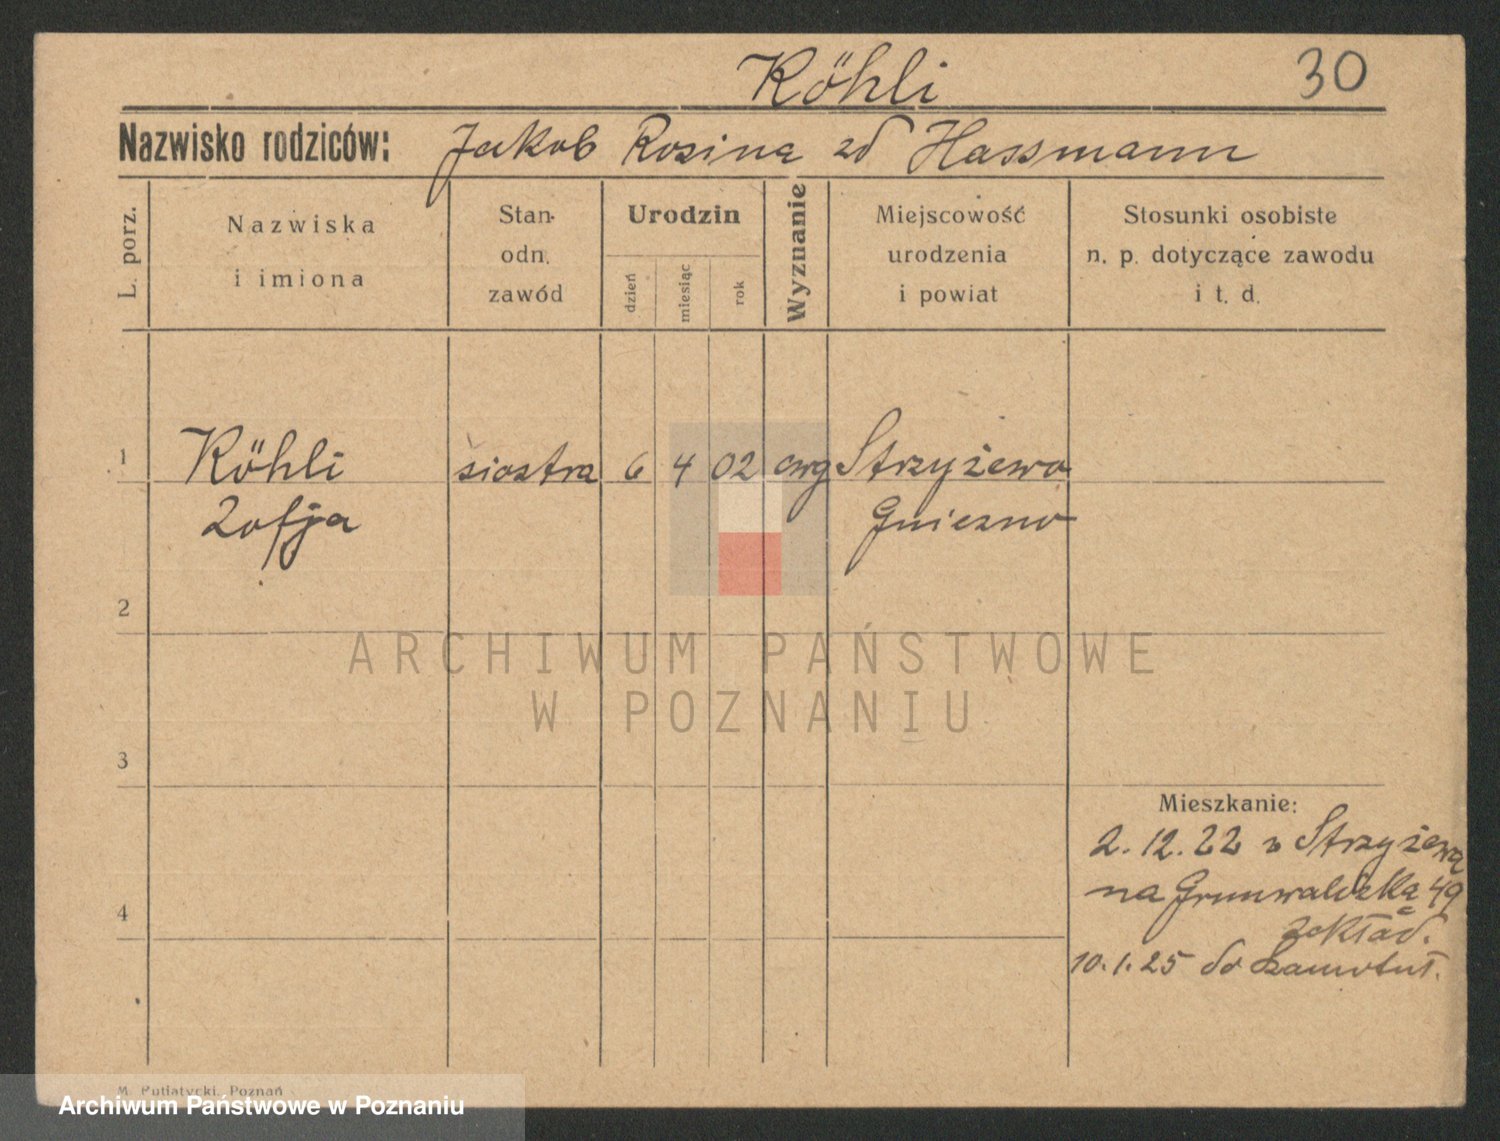 Köhli 30
Nazwisko rodziców: Jakob Rosina zd Hassmann
L. porz.
Nazwiska
i imiona
Stan
odn.
zawód
Urodzin
dzień
miesiąc
rok
Wyznanie
Miejscowość
urodzenia
i powiat
Stosunki osobiste
n. p. dotyczące zawodu
i t. d.
1 Köhli siostra 6 4 02 ewg Strzyżewo
Zofja Gniezno
2
ARCHIWUM PAŃSTWOWE
W POZNANIU
3
Mieszkanie:
2.12.22 z Strzyżewa
na Grunwaldzką 49
4
zakład.
10.1.25 do Szamotuł.
M. Putiatycki, Poznań
Archiwum Państwowe w Poznaniu